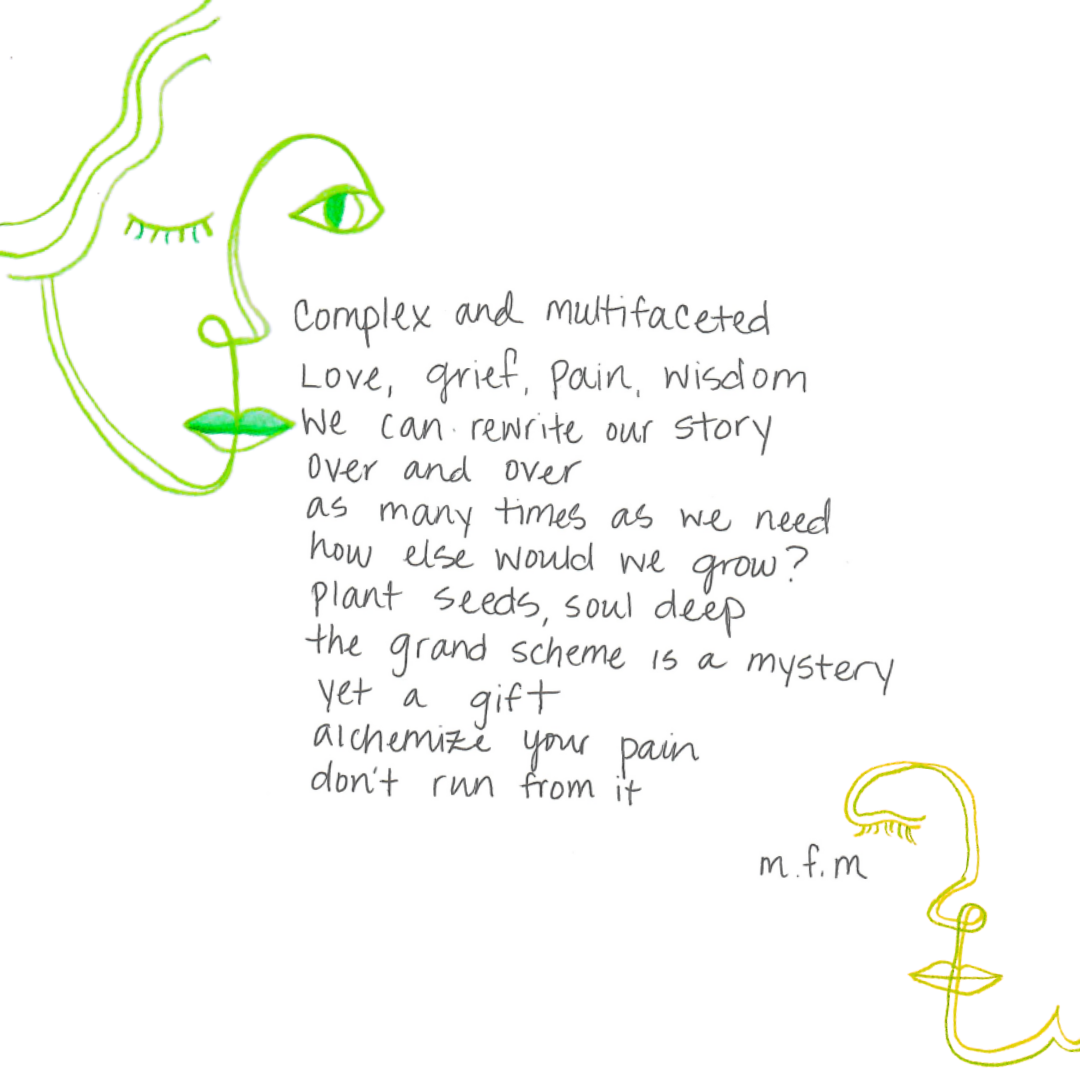 Complex and multifaceted
Love, grief, pain, wisdom
We can rewrite our story
over and over
as many times as we need
how else would we grow?
plant seeds, soul deep
the grand scheme is a mystery
yet a gift
alchemize your pain
don't run from it
m.f.m